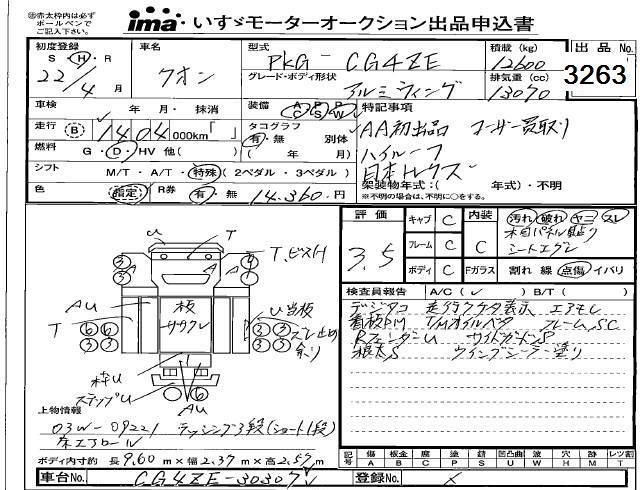 ㊟赤太枠内は必ず
ボールペンで
ご記入下さい。
ima いすゞモーターオークション出品申込書
初度登録 S・H・R 22年 4月
車名 クオン
型式 PKG- CG4ZE
積載(kg) 12600
出品No. 3263
グレード・ボディ形状 アルミウィング
排気量(cc) 13070
車検 年 月・ 抹消
装備 AC PS PW
特記事項
走行 B 1404 000km「 」
タコグラフ 有・無 別体
( 年 月)
AA初出品 ユーザー買取り
ハイルーフ
日本トレクス
燃料 G・D・HV 他( )
シフト M/T・A/T・特殊(2ペダル・3ペダル)
架装物年式:( 年式)・不明
※不明の場合は、不明に○をする。
色 指定 R券 有・無 14,360円
評価 3.5
キャブ C
フレーム C
ボディ C
内装 C
汚れ 破れ ヤニ スレ
木目パネル貼り
シートエグレ
Fガラス 割れ 線 点傷 イバリ
検査員報告 A/C(✓) B/T( )
デジタコ 走行ケタ表示 エアサス
看板PM T/Mオイルベタ フレームSC
RフェンダーU サイドガードS
根太S ウイングシーラー塗り
U T T,ビスH
③ ③ ④ ③
AU 板 サクレ U当板
T ⑥⑥ ③③ ズレ止め
③③ ③③ 余り
枠U
ステップU AU
上物情報
03W-09221 ラッシング3段(ショート1段)
床エアロール
ボディ内寸約 長9,60m×幅2,37m×高2,57m
記号 傷A 板金B 腐C 塗P 錆S 凹凸曲U 波W 穴H 跡M 欠T レツ割
車台No. CG4ZE-30307
登録No. ×